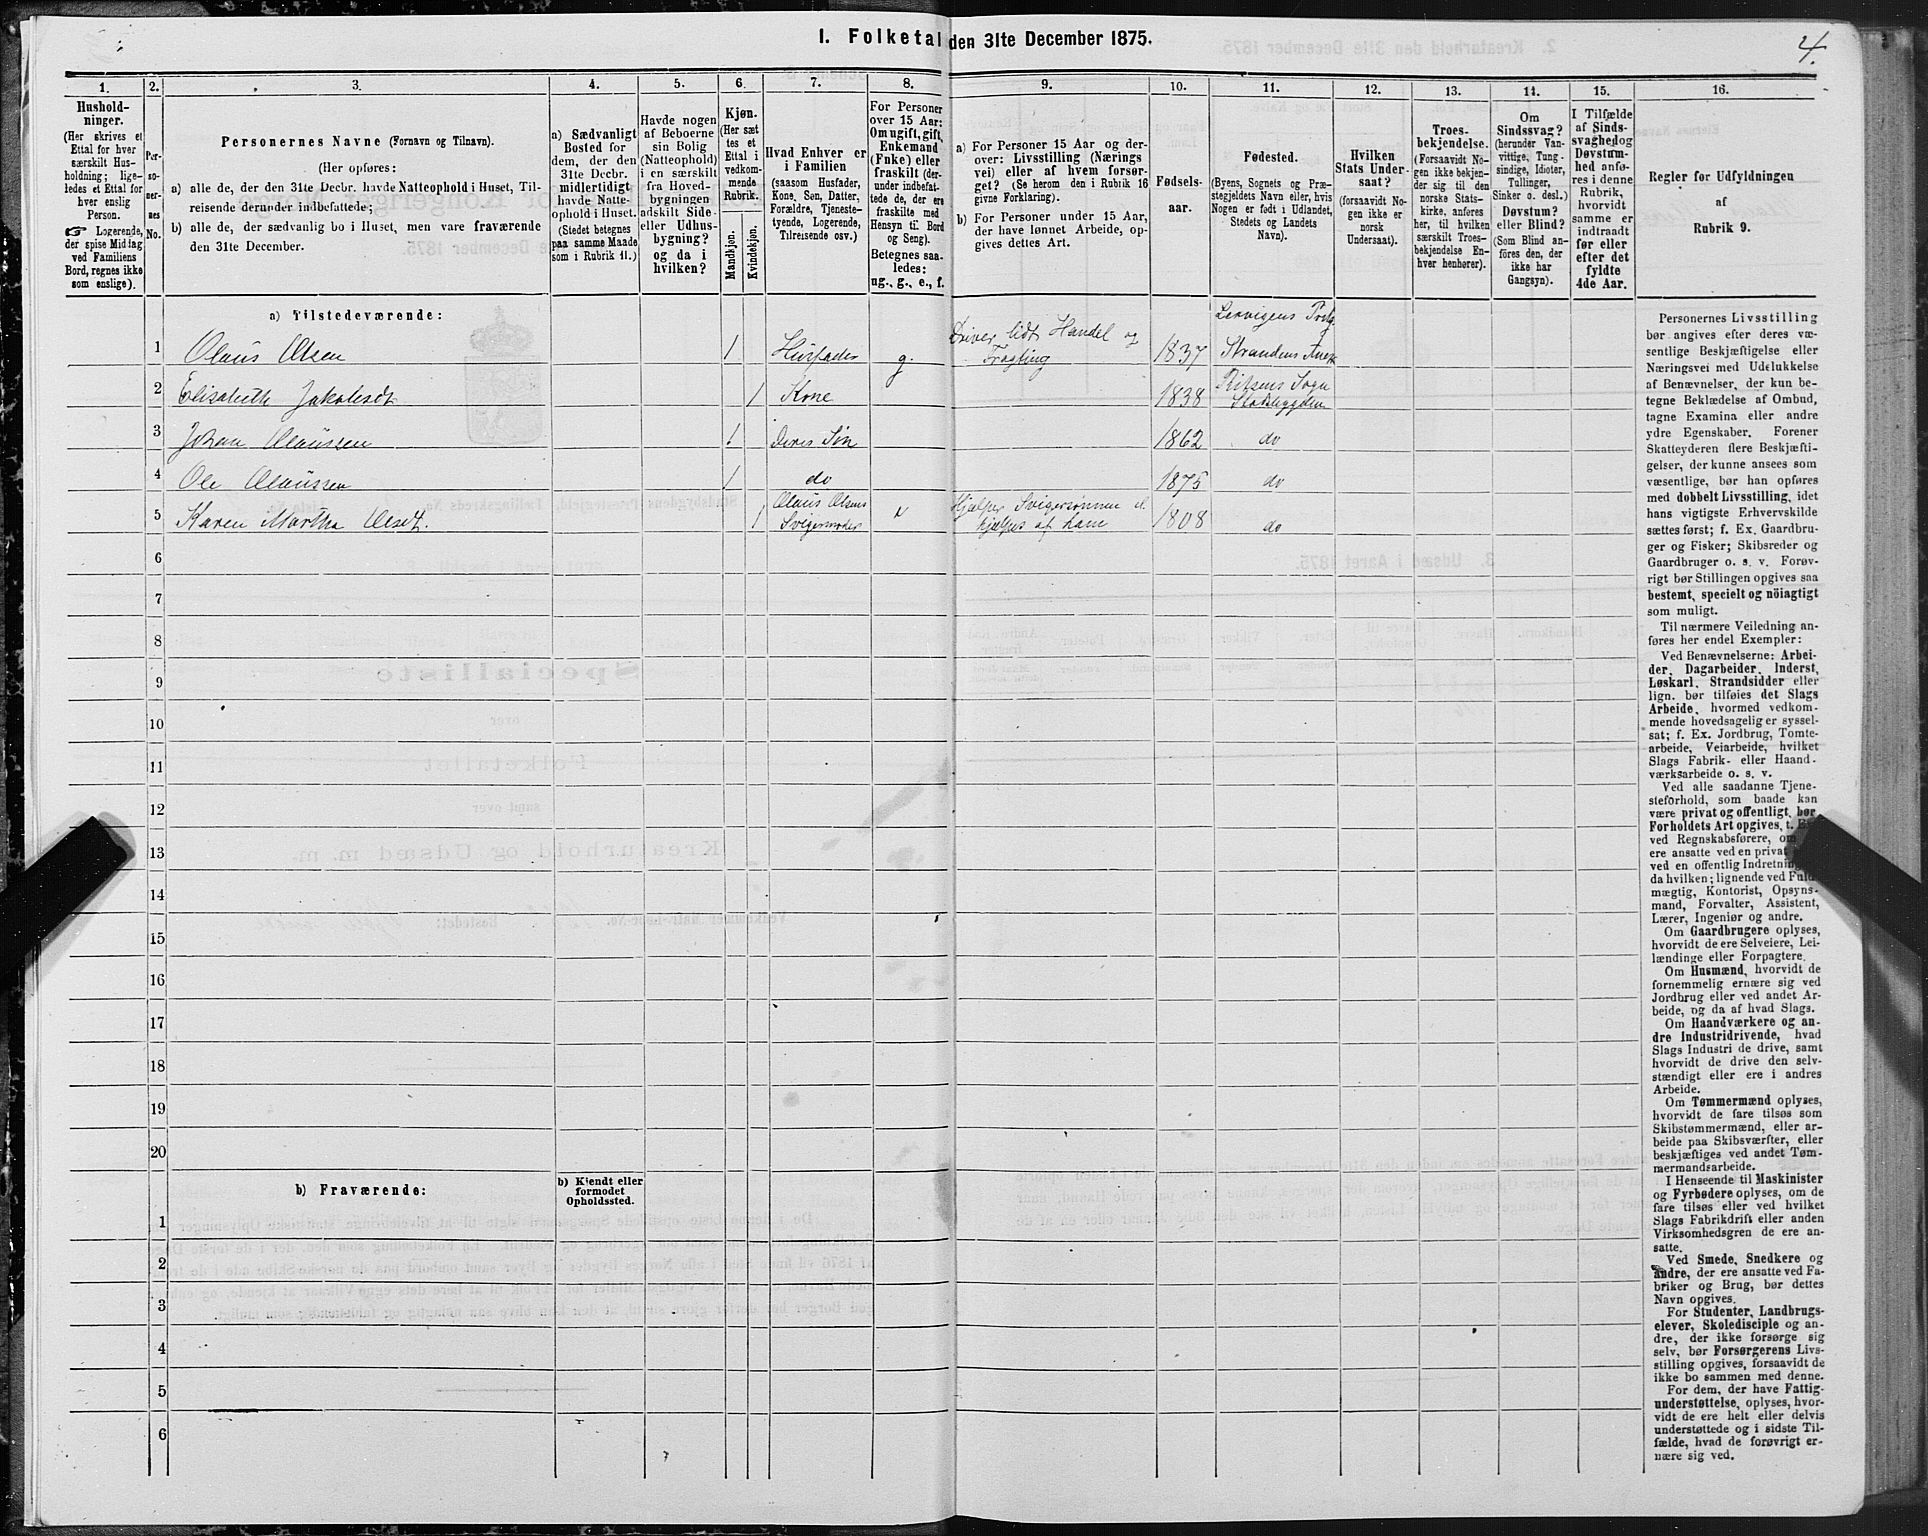 I. Folketal den 31te December 1875.
4.
1.
Hushold-
ninger.
(Her skrives et
Ettal for hver
særskilt Hus-
holdning; lige-
ledes et Ettal for
hver enslig
Person.
☞ Logerende,
der spise Middag
ved Familiens
Bord, regnes ikke
som enslige).
2.
Per-
so-
ner-
nes
No.
3.
Personernes Navne (Fornavn og Tilnavn).
(Her opføres:
a) alle de, der den 31te Decbr. havde Natteophold i Huset, Til-
reisende derunder indbefattede;
b) alle de, der sædvanlig bo i Huset, men vare fraværende
den 31te December.
4.
a) Sædvanligt
Bosted for
dem, der den
31te Decbr.
midlertidigt
havde Natte-
ophold i Huset.
(Stedet betegnes
paa samme Maade
som i Rubrik 11.)
5.
Havde nogen
af Beboerne
sin Bolig
(Natteophold)
i en særskilt
fra Hoved-
bygningen
adskilt Side-
eller Udhus-
bygning?
og da i
hvilken?
6.
Kjøn.
(Her sæt
tes et
Ettal i
vedkom-
mende
Rubrik.
Mandkjøn.
Kvindekjøn.
7.
Hvad Enhver er
i Familien
(saasom Husfader,
Kone, Søn, Datter,
Forældre, Tjeneste-
tyende, Logerende,
Tilreisende osv.)
8.
For Personer
over 15 Aar:
Om ugift, gift,
Enkemand
(Enke) eller
fraskilt (der-
under indbefat-
tede de, der ere
fraskilte med
Hensyn til Bord
og Seng).
Betegnes saa-
ledes:
ug., g., e., f.
9.
a) For Personer 15 Aar og der-
over: Livsstilling (Nærings
vei) eller af hvem forsør-
get? (Se herom den i Rubrik 16
givne Forklaring).
b) For Personer under 15 Aar,
der have lønnet Arbeide, op-
gives dettes Art.
10.
Fødsels-
aar.
11.
Fødested.
(Byens, Sognets og Præ-
stegjeldets Navn eller, hvis
Nogen er født i Udlandet,
Stedets og Landets
Navn).
12.
Hvilken
Stats Under-
saat?
(forsaavidt No-
gen ikke er
norsk
Undersaat).
13.
Troes-
bekjendelse.
(Forsaavidt No-
gen ikke bekjen-
der sig til den
norske Stats-
kirke, anføres
her, til hvilken
særskilt Troes-
bekjendelse En-
hver henhører).
14.
Om
Sindssvag?
(herunder Van-
vittige, Tung-
sindige, Idioter,
Tullinger,
Sinker o. desl.)
Døvstum?
eller Blind?
(Som Blind an-
føres den, der
ikke har
Gangsyn).
15.
I Tilfælde
af Sinds-
svaghed og
Døvstum-
hed anfø-
res i denne
Rubrik,
hvorvidt
samme er
indtraadt
før eller
efter det
fyldte
4de Aar.
16.
Regler for Udfyldningen
af
Rubrik 9.
a) Tilstedeværende:
1 Olaus Olsen 1 Husfader g. Driver lidt Handel og Fragting 1837 Strandens
2 Elisabeth Jakobsdt 1 Kone 1838 Ritsens Sogn Stadsbygden
3 Johan Olaussen 1 Deres Søn 1862 do
4 Ole Olaussen 1 do 1875 do
5 Karen Martha Olsdt. 1 Olaus Olsens Svigermoder Hjælper Svigersønnen og hjelpes af ham 1808 do
6
7
8
9
10
11
12
13
14
15
16
17
18
19
20
b) Fraværende:
b) Kjendt eller
formodet
Opholdssted.
1
2
3
4
5
6
Personernes Livsstilling
bør angives efter deres væ-
sentlige Beskjæftigelse eller
Næringsvei med Udelukkelse
af Benævnelser, der kun be-
tegne Beklædelse af Ombud,
tagne Examina eller andre
ydre Egenskaber. Forener
Skatteyderen flere Beskjæfti-
gelser, der kunne ansees som
væsentlige, bør han opføres
med dobbelt Livsstilling, idet
hans vigtigste Erhvervskilde
sættes først; f. Ex. Gaardbru-
ger og Fisker; Skibsreder og
Gaardbruger o. s. v. Forøv-
rigt bør Stillingen opgives saa
bestemt, specielt og nöiagtigt
som muligt.
Til nærmere Veiledning an-
føres her endel Exempler:
Ved Benævnelserne: Arbei-
der, Dagarbeider, Inderst,
Løskarl, Strandsidder eller
lign. bør tilføies det Slags
Arbeide, hvormed vedkom-
mende hovedsagelig er syssel-
sat; f. Ex. Jordbrug, Tomte-
arbeide, Veiarbeide, hvilket
Slags Fabrik- eller Haand-
værksarbeide o. s. v.
Ved alle saadanne Tjene-
steforhold, som baade kan
være privat og offentligt, bør
Forholdets Art opgives, t.
ved Regnskabsførere, om
ere ansatte ved en privat
ved en offentlig Indretning,
da hvilken; lignende ved Fuld-
mægtig, Kontorist, Opsyns-
mand, Forvalter, Assistent,
Lærer, Ingeniør og andre.
Om Gaardbrugere oplyses,
hvorvidt de ere Selveiere, Lei-
lændinge eller Forpagtere.
Om Husmænd, hvorvidt de
fornemmelig ernære sig ved
Jordbrug eller ved andet Ar-
beide, og da af hvad Slags.
Om Haandværkere og an-
dre Industridrivende, hvad
Slags Industri de drive, samt
hvorvidt de drive den selv-
stændigt eller ere i andres
Arbeide.
Om Tømmermænd oplyses,
hvorvidt de fare tilsøs som
Skibstømmermænd, eller ar-
beide paa Skibsværfter, eller
beskjæftiges ved andet Tøm-
mermandsarbeide.
I Henseende til Maskinister
og Fyrbødere oplyses, om de
fare tilsøs eller ved hvilket
Slags Fabrikdrift eller anden
Virksomhedsgren de ere an-
satte.
Ved Smede, Snedkere og
andre, der ere ansatte ved Fa-
briker og Brug, bør dettes
Navn opgives.
For Studenter, Landbrugs-
elever, Skoledisciple og an-
dre, der ikke forsørge sig
selv, bør Forsørgerens Livs-
stilling opgives, forsaavidt de
ikke bo sammen med denne.
For dem, der have Fattig-
understøttelse, oplyses, hvor-
vidt de ere helt eller delvis
understøttede og i sidste Til-
fælde, hvad de forøvrigt er-
nære sig ved.